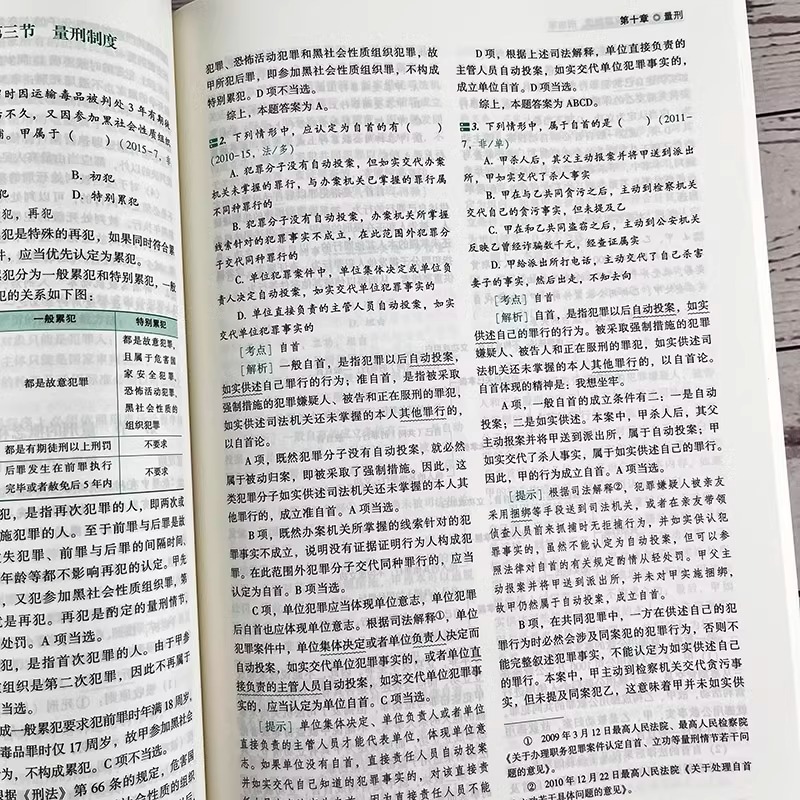 第三节 量刑制度
时因运输毒品被判处3年有期徒
不久，又因参加黑社会性质组织
甲属于（ ）（2015-7，非
B. 初犯
D. 特别累犯
犯，再犯
犯是特殊的再犯，如果同时符合累
件，应当优先认定为累犯。
犯分为一般累犯和特别累犯，一般
犯的关系如下图：
一般累犯 特别累犯
都是故意犯罪
都是故意犯罪，
且属于危害国
家安全犯罪、
恐怖活动犯罪、
黑社会性质的
组织犯罪
都是有期徒刑以上刑罚 不要求
后罪发生在前罪执行
完毕或者赦免后5年内
不要求
犯，是指再次犯罪的人，即两次或
施犯罪的人。至于前罪与后罪是故
失犯罪、前罪与后罪的间隔时间、
年龄等都不影响再犯的认定。甲先
，又犯参加黑社会性质组织罪，第
就是再犯。再犯是酌定的量刑情节，
处罚。A项当选。
犯，是指首次犯罪的人。由于甲参
组织是第二次犯罪，因此不再属于
当选。
成一般累犯要求犯前罪时年满18周岁，
毒品罪时仅17周岁，故甲参加黑社会
为，不构成累犯。C项不当选。
根据《刑法》第66条的规定，危害国
第十章 量刑
犯罪、恐怖活动犯罪和黑社会性质组织犯罪，故
甲所犯后罪，即参加黑社会性质组织罪，不构成
特别累犯。D项不当选。
综上，本题答案为A。
2. 下列情形中，应认定为自首的有（ ）
（2010-15，法/多）
A. 犯罪分子没有自动投案，但如实交代办案
机关未掌握的罪行，与办案机关已掌握的罪行属
不同种罪行的
B. 犯罪分子没有自动投案，办案机关所掌握
线索针对的犯罪事实不成立，在此范围外犯罪分
子交代同种罪行的
C. 单位犯罪案件中，单位集体决定或单位负
责人决定自动投案，如实交代单位犯罪事实的
D. 单位直接负责的主管人员自动投案，如实
交代单位犯罪事实的
［考点］自首
［解析］一般自首，是指犯罪以后自动投案，
如实供述自己罪行的行为；准自首，是指被采取
强制措施的犯罪嫌疑人、被告和正在服刑的罪犯，
如实供述司法机关还未掌握的本人其他罪行的，
以自首论。
A项，既然犯罪分子没有自动投案，就必然
属于被动归案，即被采取了强制措施。因此，这
类犯罪分子如实供述司法机关还未掌握的本人其
他罪行的，成立准自首。A项当选。
B项，既然办案机关所掌握的线索针对的犯
罪事实不成立，说明没有证据证明行为人构成犯
罪。在此范围外犯罪分子交代同种罪行的，应当
认定为自首。B项当选。
C项，单位犯罪应当体现单位意志，单位犯罪
后自首也应体现单位意志。根据司法解释①，单位
犯罪案件中，单位集体决定或者单位负责人决定而
自动投案，如实交代单位犯罪事实的，或者单位直
接负责的主管人员自动投案，如实交代单位犯罪事
实的，应当认定为单位自首。C项当选。
［提示］单位集体决定、单位负责人或者单位
直接负责的主管人员才能代表单位，体现单位意
志。如果单位没有自首，直接责任人员自动投案
并如实交代自己知道的犯罪事实的，对该直接责
D项，根据上述司法解释，单位直接负责的
主管人员自动投案，如实交代单位犯罪事实的，
成立单位自首。D项当选。
综上，本题答案为ABCD。
3. 下列情形中，属于自首的是（ ）（2011-
7，非/单）
A. 甲杀人后，其父主动报案并将甲送到派出
所，甲如实交代了杀人事实
B. 甲在与乙共同贪污之后，主动到检察机关
交代自己的贪污事实，但未提及乙
C. 甲在和乙共同盗窃之后，主动到公安机关
反映乙曾经诈骗数千元，经查证属实
D. 甲给派出所打电话，主动交代了自己杀害
妻子的事实，然后出走，不知去向
［考点］自首
［解析］自首，是指犯罪以后自动投案，如实
供述自己的罪行的行为。被采取强制措施的犯罪
嫌疑人、被告人和正在服刑的罪犯，如实供述司
法机关还未掌握的本人其他罪行的，以自首论。
自首体现的精神是：我想坐牢。
A项，一般自首的成立条件有二：一是自动
投案；二是如实供述。本案中，甲杀人后，其父
主动报案并将甲送到派出所，属于自动投案；甲
如实交代了杀人事实，属于如实供述自己的罪行。
因此，甲的行为成立自首。A项当选。
［提示］根据司法解释②，犯罪嫌疑人被亲友
采用捆绑等手段送到司法机关，或者在亲友带领
侦查人员前来抓捕时无拒捕行为，并如实供认犯
罪事实的，虽然不能认定为自动投案，但可以参
照法律对自首的有关规定酌情从轻处罚。甲父主
动报案并将甲送到派出所，并未对甲实施捆绑，
故甲仍然属于自动投案，成立自首。
B项，在共同犯罪中，一方在供述自己的犯
罪行为时必然会涉及同案犯的犯罪行为，否则不
能完整叙述犯罪事实，不能认定为如实供述自己
的罪行。本案中，甲主动到检察机关交代贪污事
实，但未提及同案犯乙，这意味着甲并未如实供
① 2009年3月12日最高人民法院、最高人民检察院
《关于办理职务犯罪案件认定自首、立功等量刑情节若干问
题的意见》。
② 2010年12月22日最高人民法院《关于处理自首